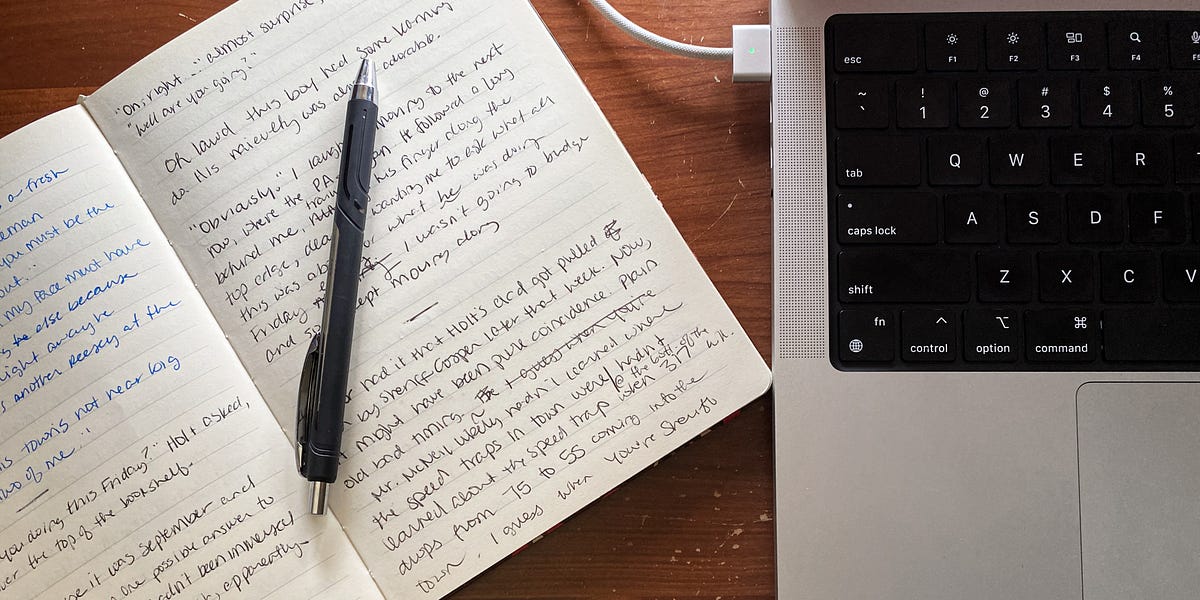 s a fresh
eman
you must be the
out...
n my face must have
s the else because
light away be
s another Reesey at the
is town's not near big
two of me..."
you doing this Friday?" Holt asked,
ver the top of the bookshelf.
e it was September and
n one possible answer to
adn't been immersed
, apparently.
"On, right..." almost surprise,
"Well are you going?"
Oh lawd this boy had some learning
do. His naievety was adorable.
"Obviously." I laugh moving to the next
row, where the PA He followed a long
behind me, train his finger along the
top edge, clea wanting me to ask what all
this was abo or what he was doing
Friday I wasn't going to budge
and so kept moving along
r had it that Holt's dad got pulled
by Sheriff Cooper later that week. Now,
t might have been pure coincidence. Plain
old bad timing. I guess when you're
Mr. McNeil likely hadn't learned where
the speed traps in town were, hadn't
learned about the speed trap @ the bottom of the hill
when 317
drops from 75 to 55 coming into the
town. I guess when you're Sheriff
esc
F1
F2
F3
F4
F5
~ ` ! 1 @ 2 # 3 $ 4 % 5
tab Q W E R T
caps lock A S D F
shift Z X C V
fn control ^ option ⌥ command ⌘